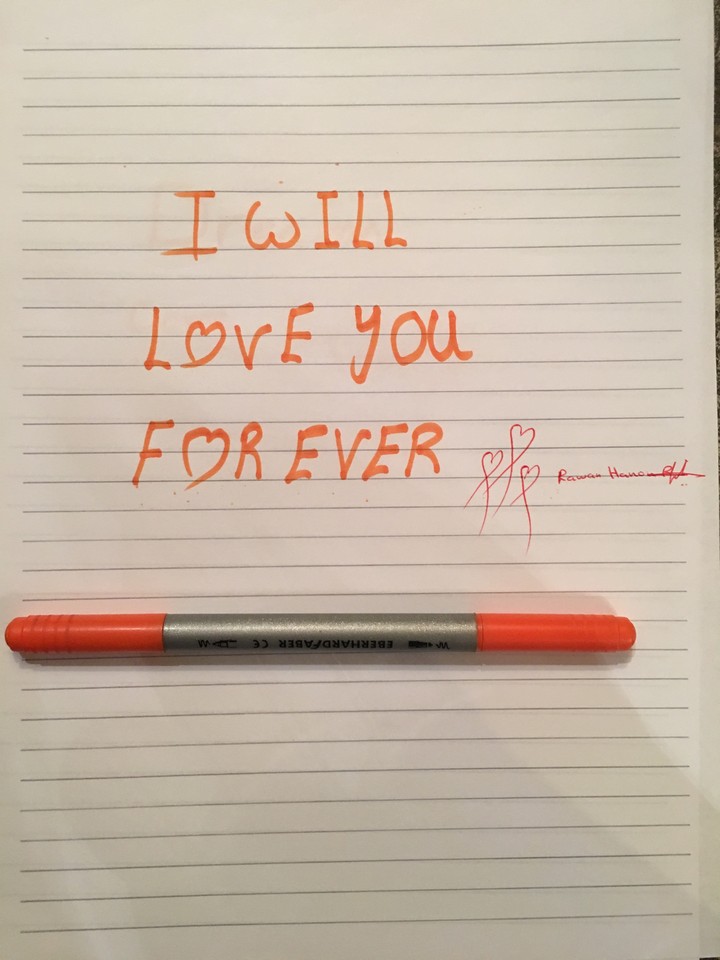 I WILL
LOVE YOU
FOR EVER
Rawan
EBERHARD FABER CE